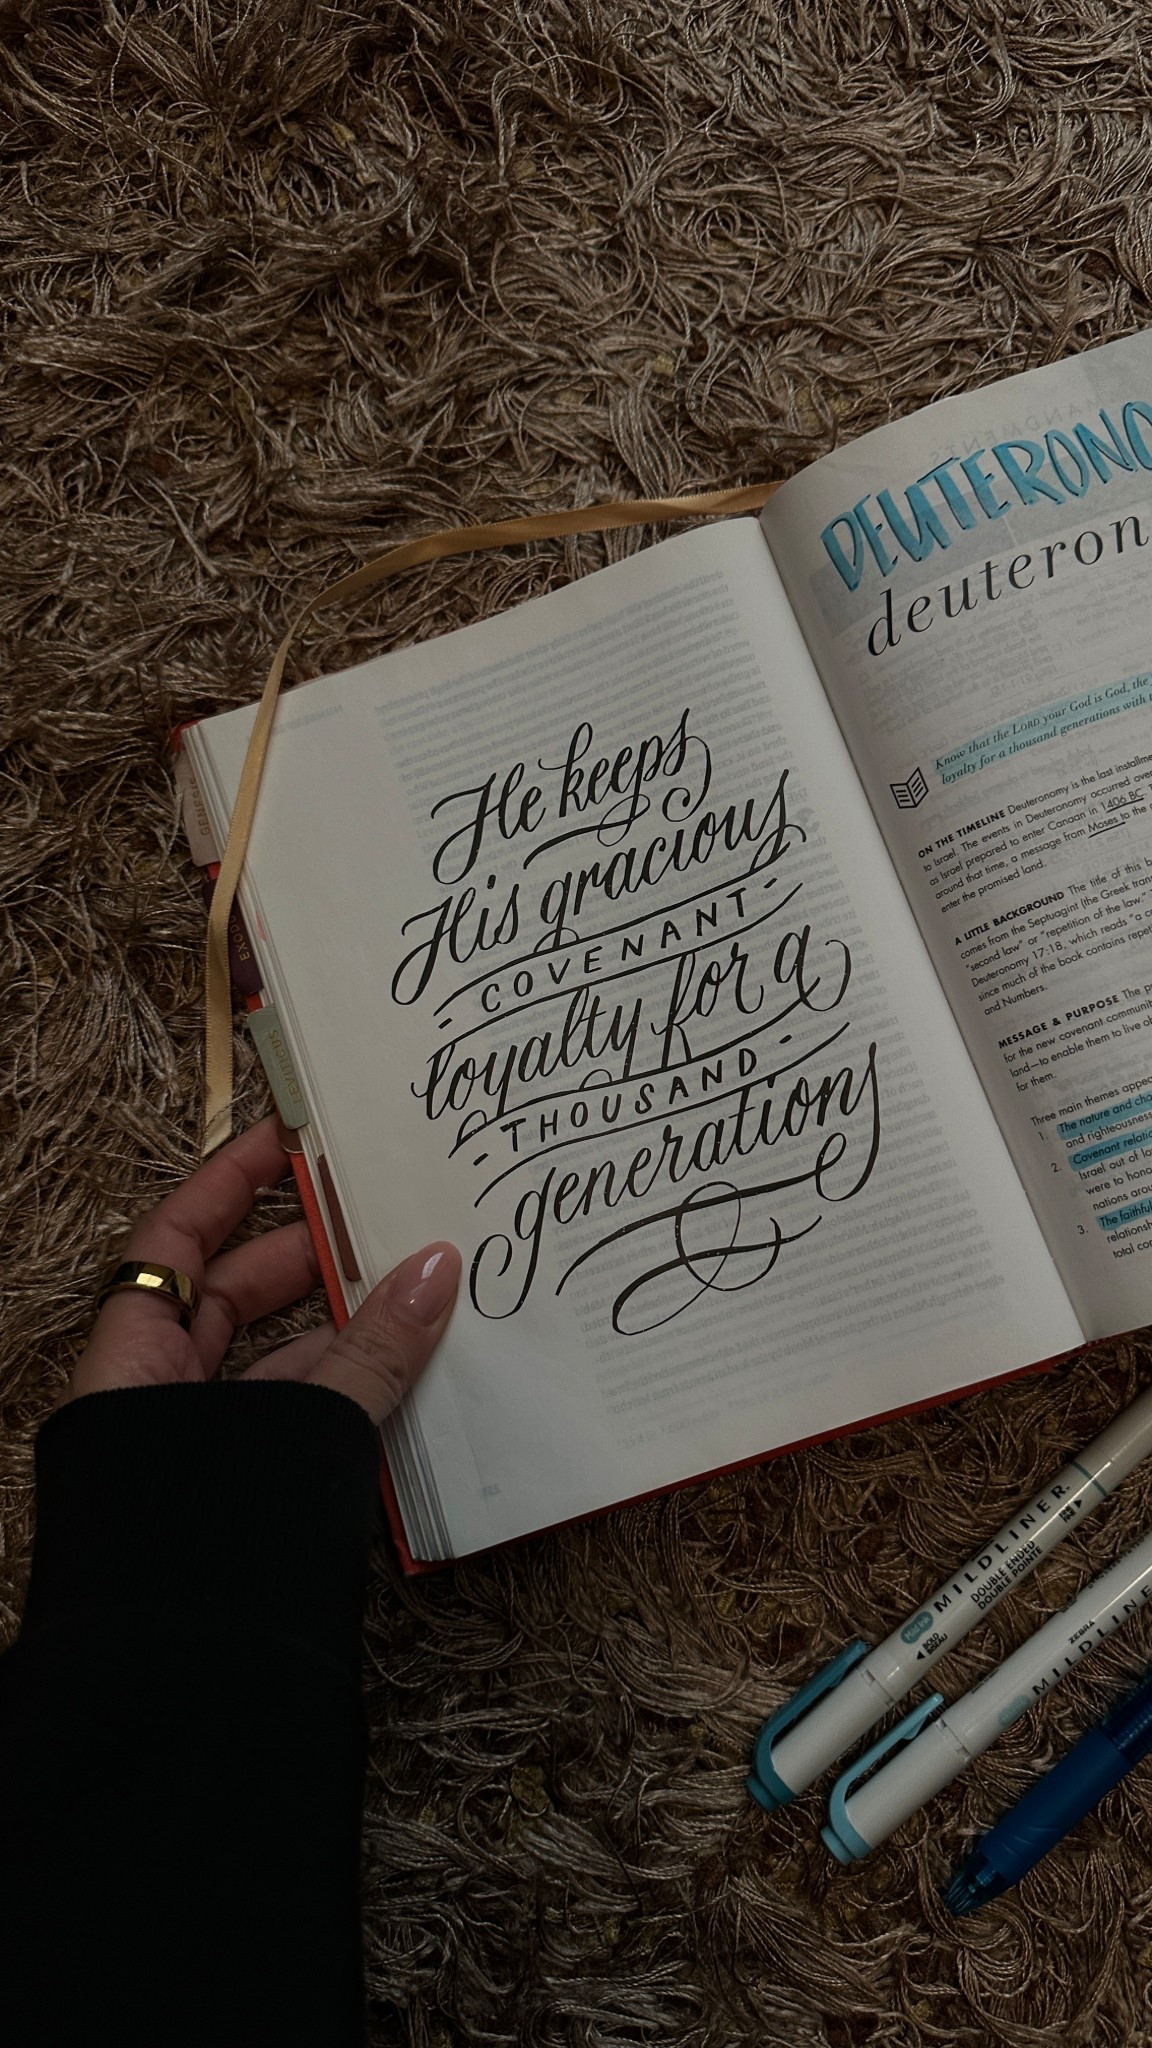 He keeps
His gracious
COVENANT
loyalty for a
THOUSAND
generations
GENESIS
EXODUS
LEVITICUS
DEUTERONO
deuteron
Know that the LORD your God is God, the
loyalty for a thousand generations with
ON THE TIMELINE Deuteronomy is the last installme
to Israel. The events in Deuteronomy occurred over
as Israel prepared to enter Canaan in 1406 BC.
around that time, a message from Moses to the
enter the promised land.
A LITTLE BACKGROUND The title of this b
comes from the Septuagint (the Greek trans
"second law" or "repetition of the law."
Deuteronomy 17:18, which reads "a c
since much of the book contains repeti
and Numbers.
MESSAGE & PURPOSE The p
for the new covenant communit
land—to enable them to live ob
for them.
Three main themes appea
1. The nature and cha
and righteousness
2. Covenant relatio
Israel out of lo
were to hono
nations arou
3. The faithful
relationsh
total com
MILDLINER.
DOUBLE ENDED
DOUBLE POINTE
BOLD
BISEAU
ZEBRA
MILDLINE